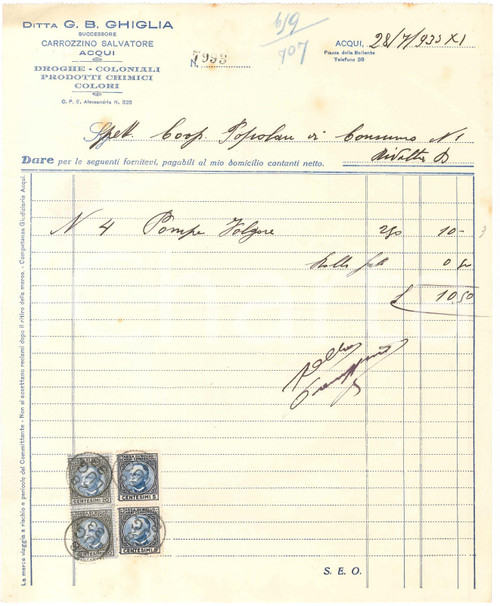 DITTA G. B. GHIGLIA
SUCCESSORE
CARROZZINO SALVATORE
ACQUI
DROGHE - COLONIALI
PRODOTTI CHIMICI
COLORI
C. P. E. Alessandria N. 825
N. 7993
6/9
707
ACQUI, 28/7/933 XI
Piazza della Bollente
Telefono 28
Spett. Coop. Popolare di Consumo N 1
Dare per le seguenti fornitevi, pagabili al mio domicilio contanti netto.
Rivalta B
N 4 Pompe Folgore 250 10-
Bollo 0 50
£ 10 50
La merce viaggia a rischio e pericolo del Committente - Non si accettano reclami dopo il ritiro della merce. - Competenza Giudiziaria Acqui.
CENTESIMI
CENTESIMI 5
CENTESIMI
CENTESIMI
S. E. O.